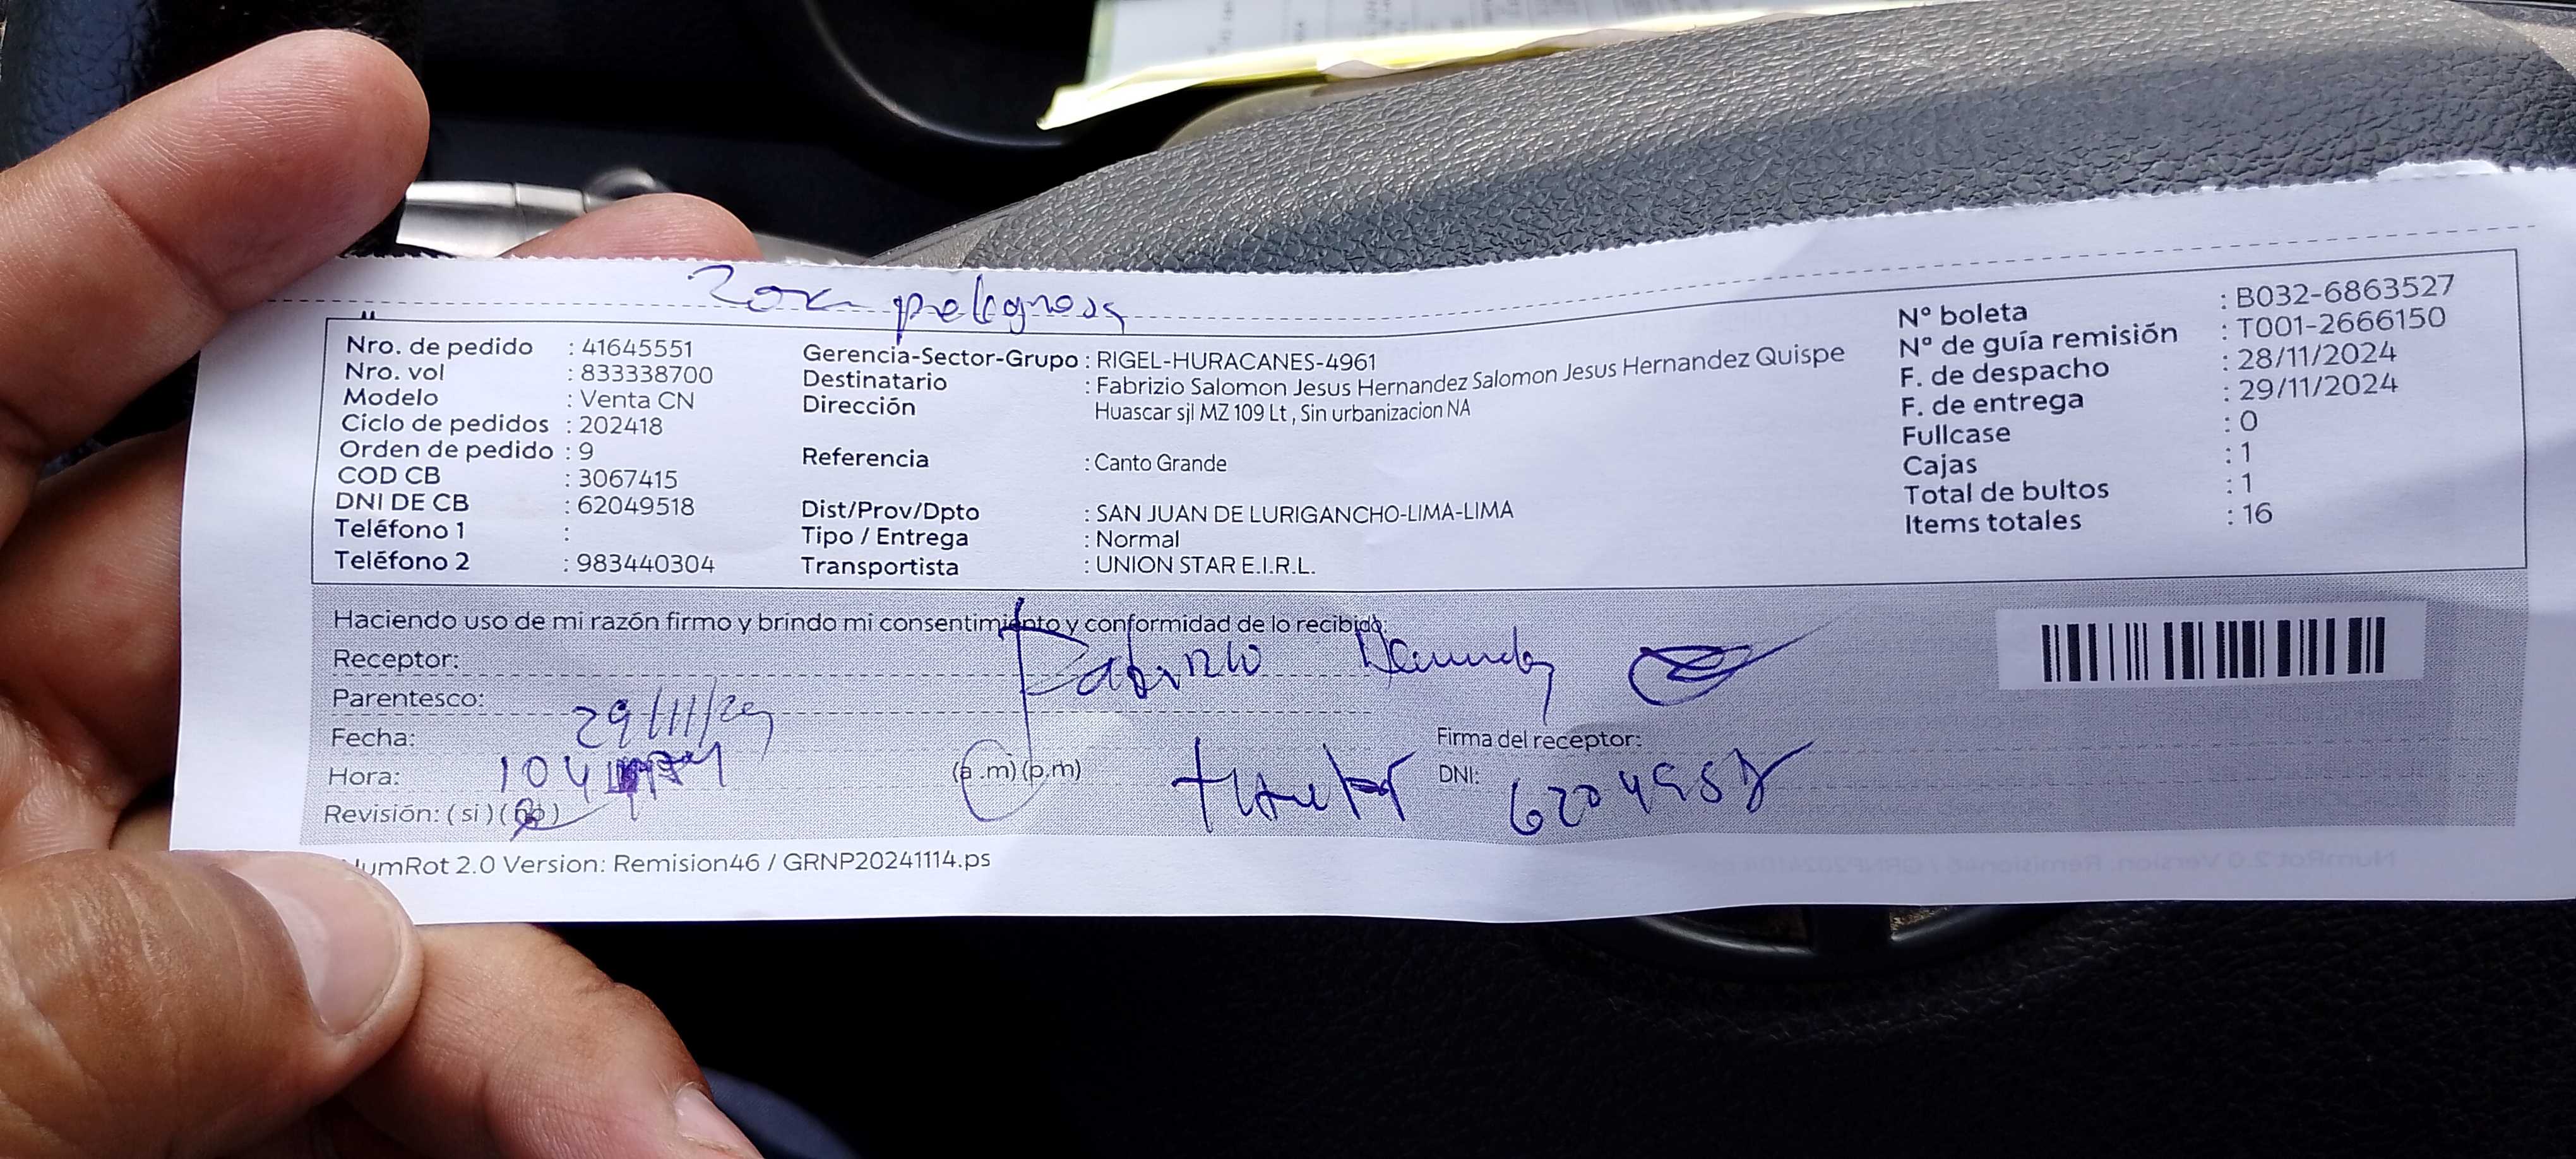 Zona peligrosa
Nro. de pedido : 41645551
Nro. vol : 833338700
Modelo : Venta CN
Ciclo de pedidos : 202418
Orden de pedido : 9
COD CB : 3067415
DNI DE CB : 62049518
Teléfono 1 :
Teléfono 2 : 983440304
Gerencia-Sector-Grupo : RIGEL-HURACANES-4961
Destinatario : Fabrizio Salomon Jesus Hernandez Salomon Jesus Hernandez Quispe
Dirección Huascar sjl MZ 109 Lt , Sin urbanizacion NA
Referencia : Canto Grande
Dist/Prov/Dpto : SAN JUAN DE LURIGANCHO-LIMA-LIMA
Tipo / Entrega : Normal
Transportista : UNION STAR E.I.R.L.
Nº boleta : B032-6863527
Nº de guía remisión : T001-2666150
F. de despacho : 28/11/2024
F. de entrega : 29/11/2024
Fullcase : 0
Cajas : 1
Total de bultos : 1
Items totales : 16
Haciendo uso de mi razón firmo y brindo mi consentimiento y conformidad de lo recibido:
Receptor: Fabrizio Hernandez
Parentesco:
Fecha: 29/11/24
Hora: 104 (a.m) (p.m)
Revisión: (si) (no)
Firma del receptor:
DNI:
NumRot 2.0 Version: Remision46 / GRNP20241114.ps